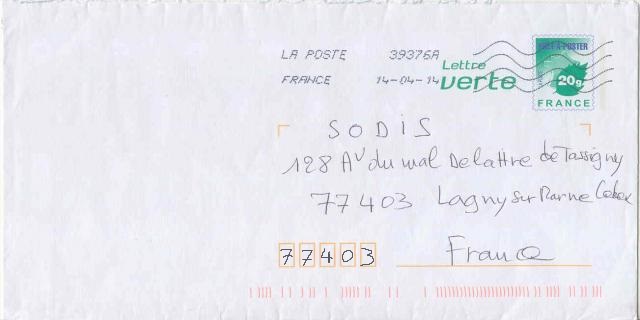 LA POSTE 39376A
FRANCE 14-04-14
Lettre
verte
PRÊT-À-POSTER
20g
FRANCE
SODIS
128 Av du mal Delattre de Tassigny
77403 Lagny sur Marne Cedex
77403
France